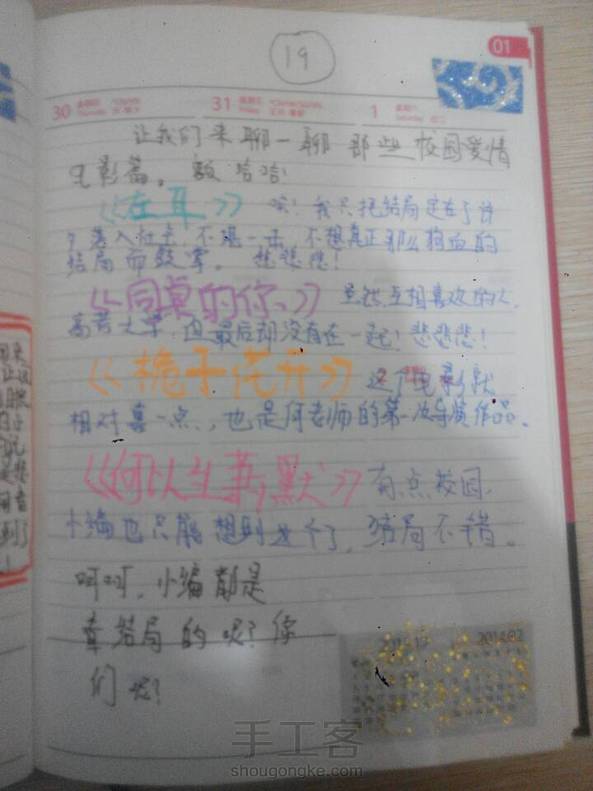 19
01
30
31
1
让我们来聊一聊 那些校园爱情
电影篇。 哈哈!
《左耳》 哎! 我只把结局定在了许
不堪一击, 不想真正那么狗血的
结局 悲悲悲!
《同桌的你》 互相喜欢的人,
高考大学, 但最后却没有在一起! 悲悲悲!
《栀子花开》 这个电影就
相对喜一点, 也是何老师的第一次导演作品。
《何以笙箫默》 有点校园,
小编也只能想到这个了, 结局不错。
呵呵, 小编都是
结局的呢? 你
们呢?
2014.02
手工客
shougongke.com